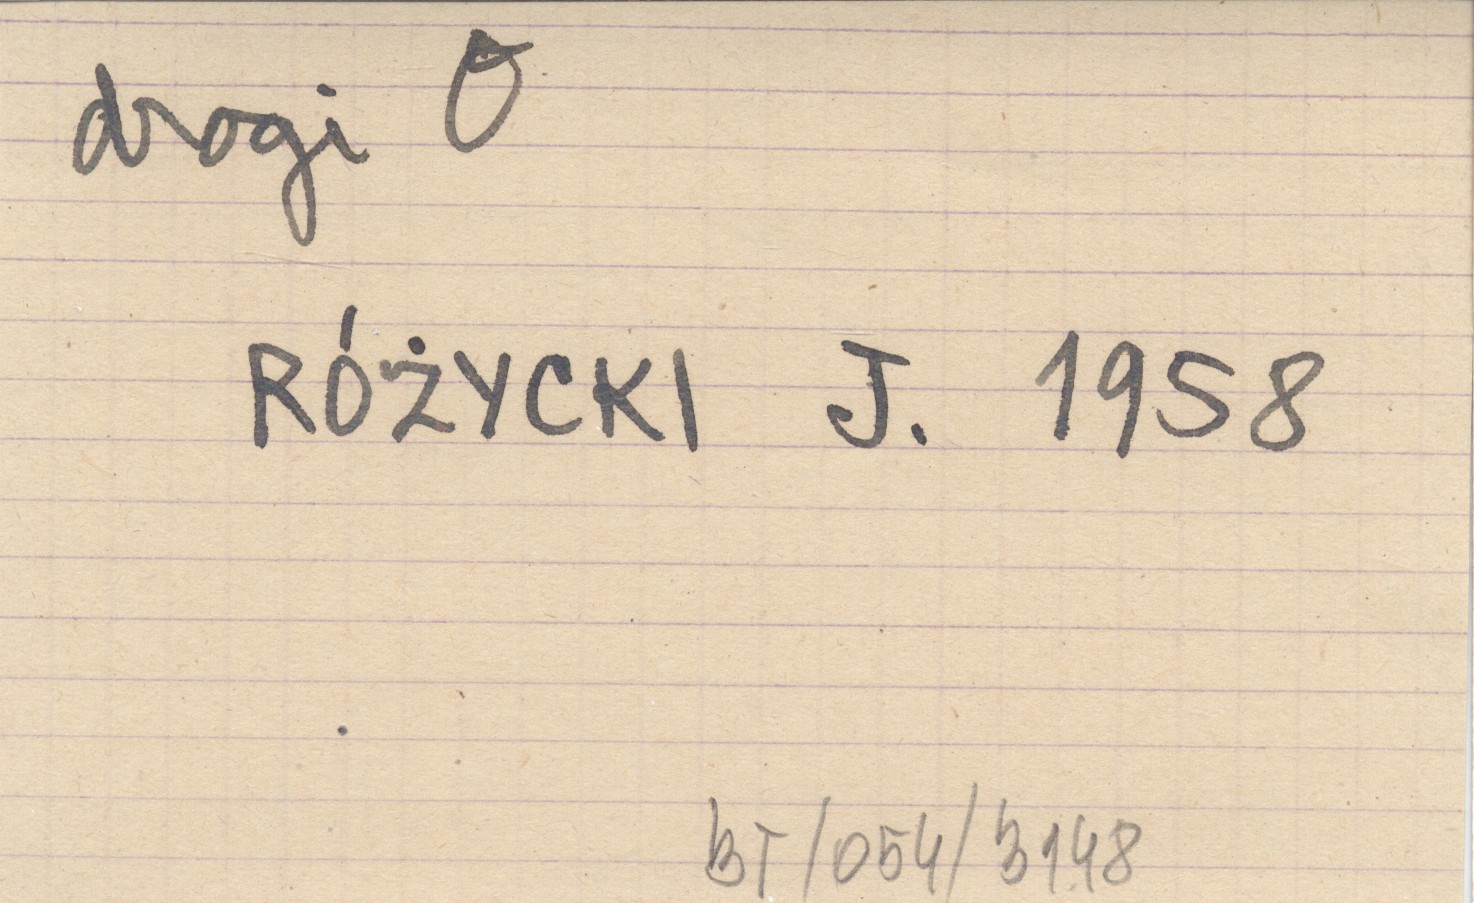 drogi O
RÓŻYCKI J. 1958
BT/054/3148